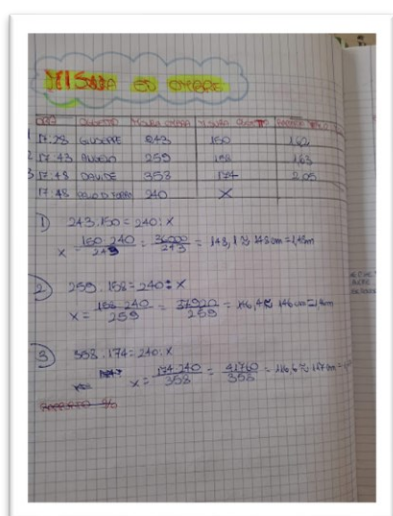 MISURA ED OMBRE
ORA OGGETTO MISURA OMBRA MISURA OGGETTO
1 17:28 GIUSEPPE 243 150 1,62
2 17:43 259 158 1,63
3 17:48 DAVIDE 358 174 2,05
17:48 240 X
1) 243:150=240:X
X= 150.240/243 = 36000/243 = 148,1 ≈ 148 cm = 1,48m
2) 259:158=240:X
X= 158.240/259 = 37920/259 = 146,4 ≈ 146 cm = 1,46m
3) 358:174=240:X
X= 174.240/358 = 41760/358 = 116,6 ≈ 117 cm =